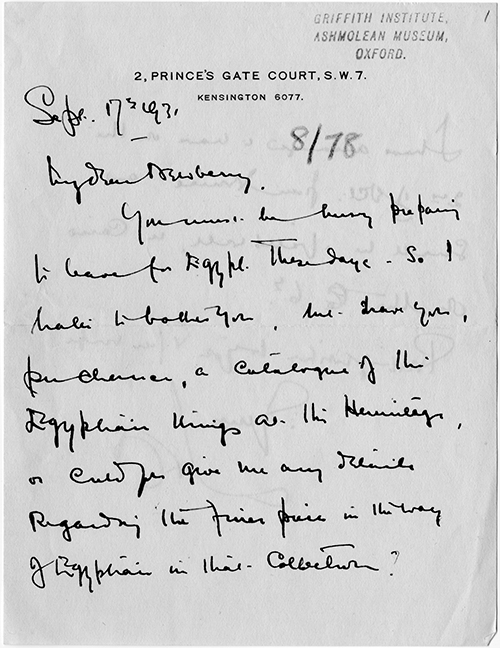 1
GRIFFITH INSTITUTE,
ASHMOLEAN MUSEUM,
OXFORD.
2, PRINCE'S GATE COURT, S.W. 7.
KENSINGTON 6077.
Sept. 17th 1931
8/78
My dear Newberry,
You must be busy preparing
to leave for Egypt these days - So I
hate to bother you, but have you,
perchance, a catalogue of the
Egyptian things at the Hermitage,
or could you give me any details
regarding the finer piece in the way
of Egyptian in that collection?